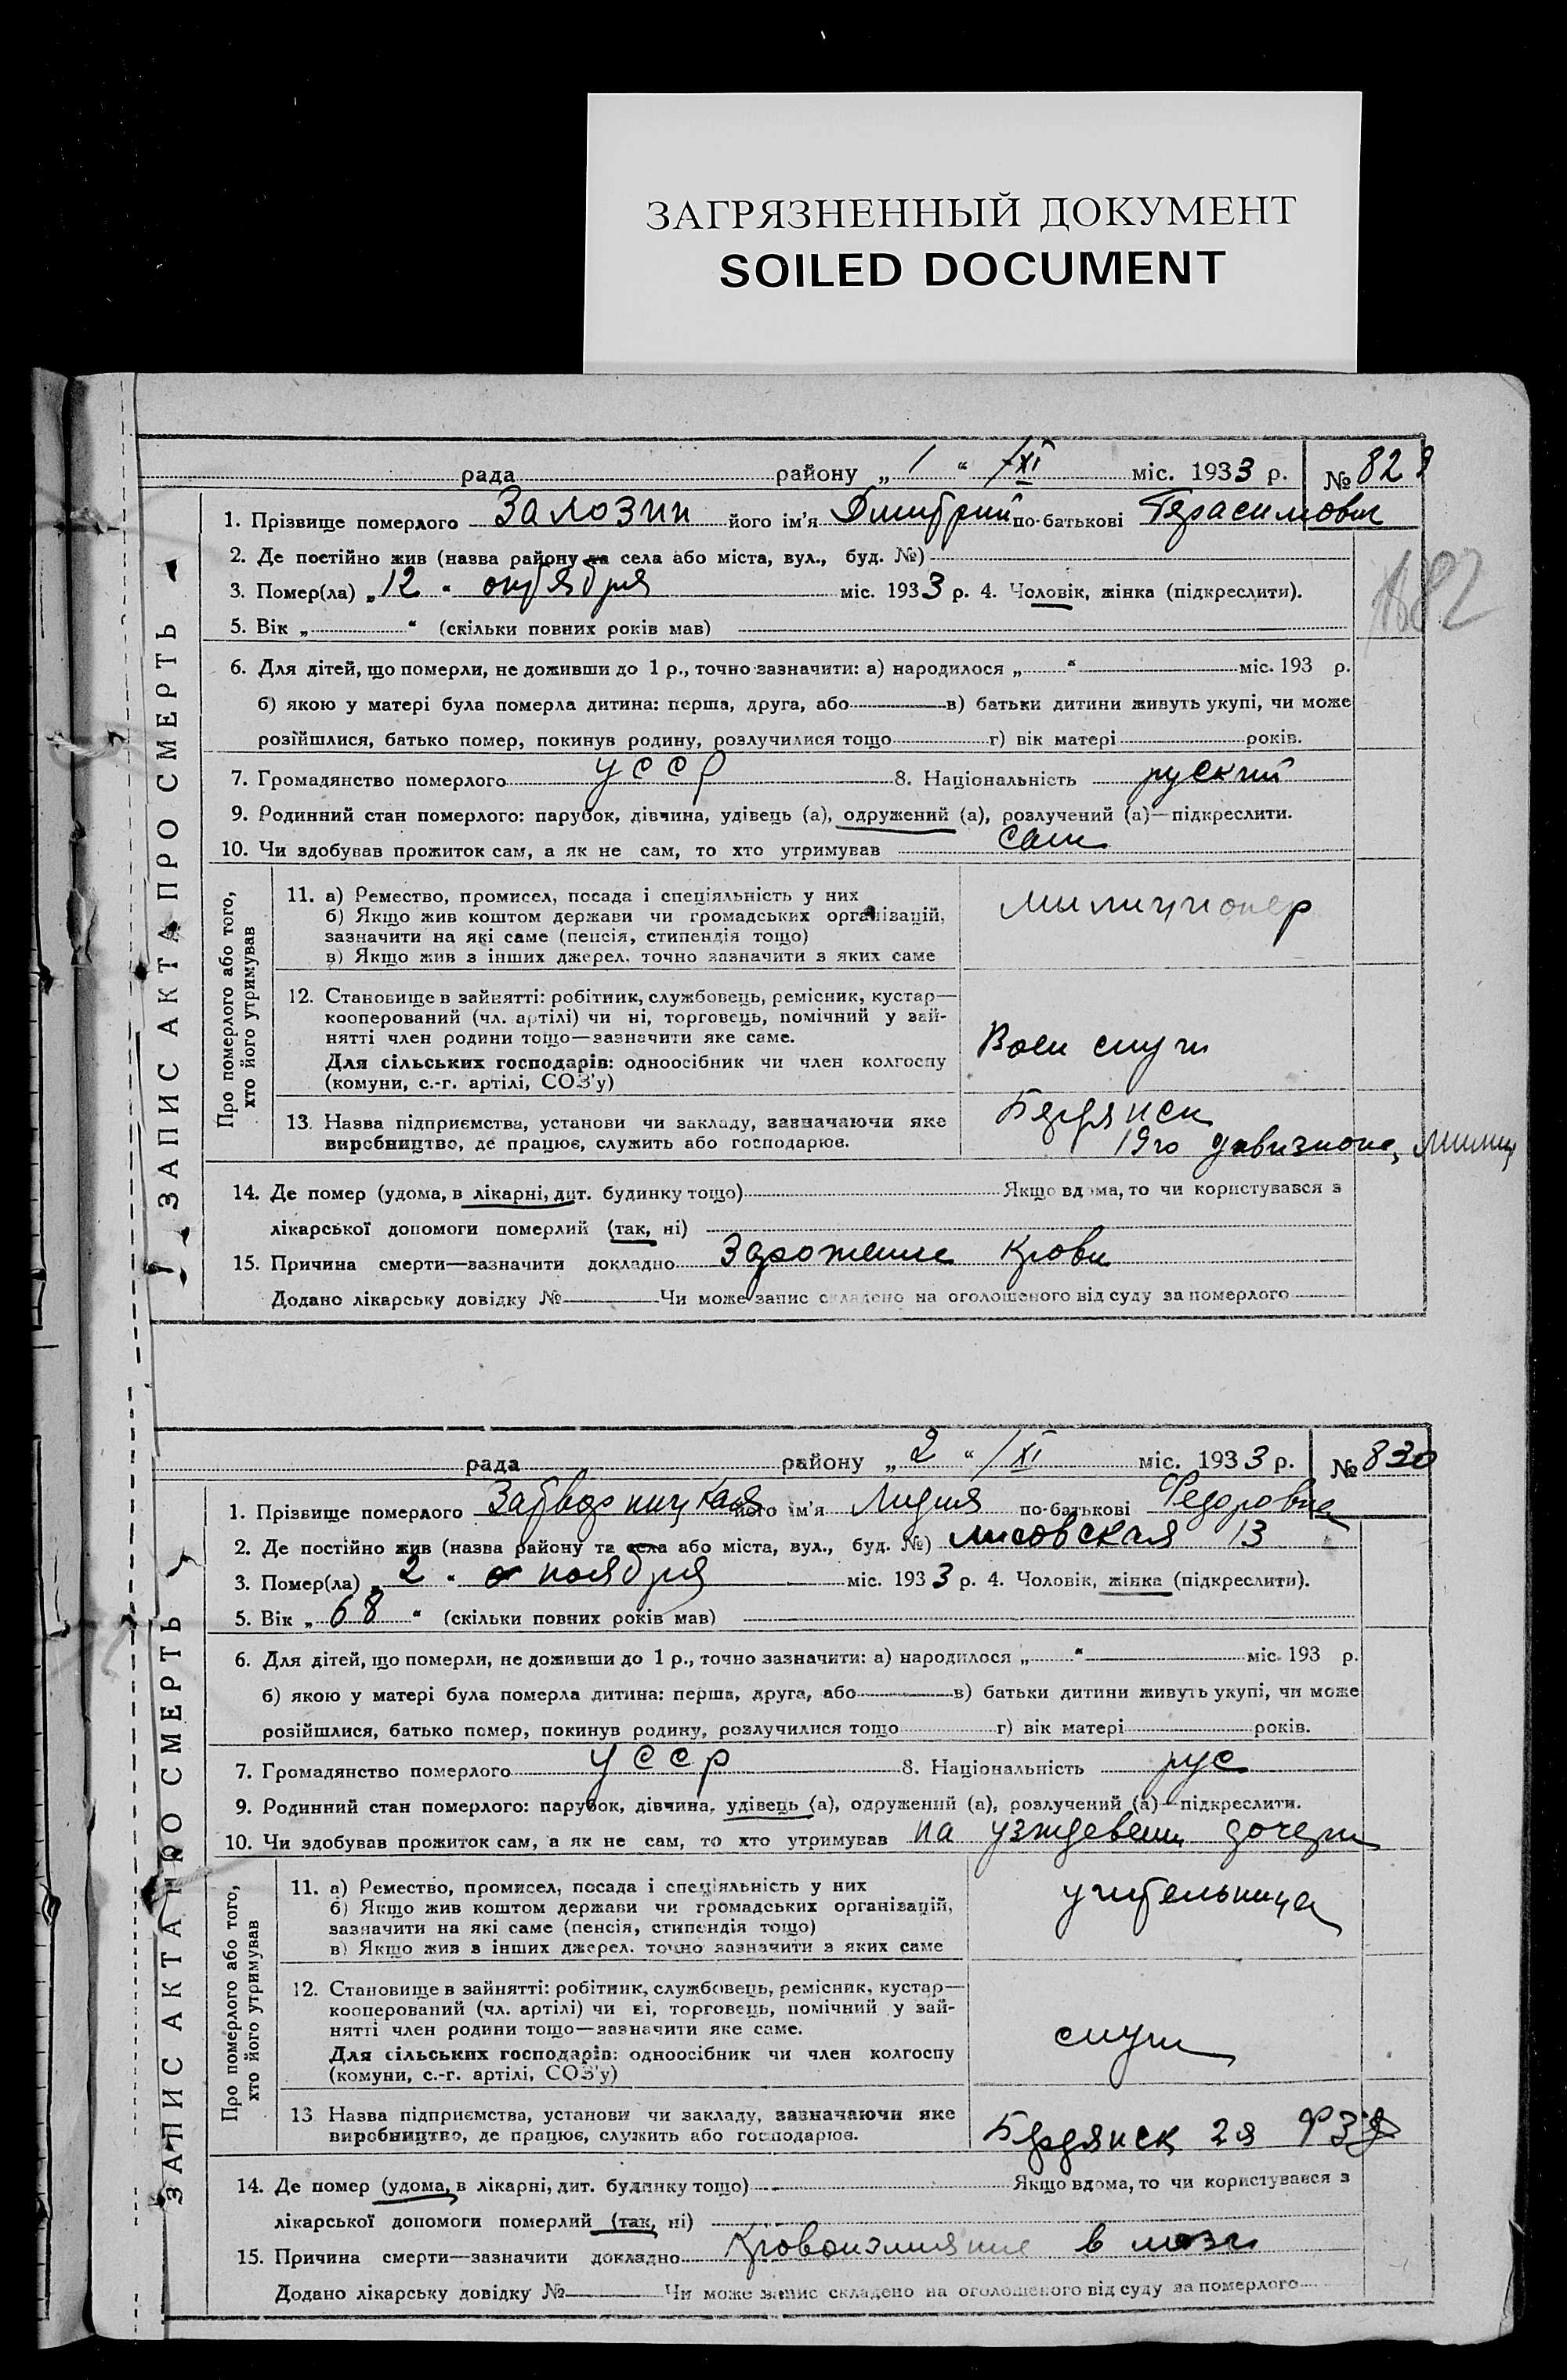 ЗАГРЯЗНЕННЫЙ ДОКУМЕНТ
SOILED DOCUMENT
рада району „ 1 “ /XI міс. 1933 р. № 828
1. Прізвище померлого Залозин його ім'я Дмитрий по-батькові Герасимович
2. Де постійно жив (назва району та села або міста, вул., буд. №)
3. Помер(ла) „ 12 “ октября міс. 1933 р. 4. Чоловік, жінка (підкреслити).
5. Вік „ “ (скільки повних років мав)
6. Для дітей, що померли, не доживши до 1 р., точно зазначити: а) народилося „ “ міс. 193 р.
б) якою у матері була померла дитина: перша, друга, або в) батьки дитини живуть укупі, чи може
розійшлися, батько помер, покинув родину, розлучилися тощо г) вік матері років.
7. Громадянство померлого УССР 8. Національність руский
9. Родинний стан померлого: парубок, дівчина, удівець (а), одружений (а), розлучений (а)—підкреслити.
10. Чи здобував прожиток сам, а як не сам, то хто утримував сам
ЗАПИС АКТА ПРО СМЕРТЬ
Про померлого або того, хто його утримував
11. а) Ремество, промисел, посада і спеціяльність у них
б) Якщо жив коштом держави чи громадських організацій,
зазначити на які саме (пенсія, стипендія тощо)
в) Якщо жив з інших джерел, точно зазначити з яких саме
милиционер
12. Становище в зайнятті: робітник, службовець, ремісник, кустар—
кооперований (чл. артілі) чи ні, торговець, помічний у зай-
нятті член родини тощо—зазначити яке саме.
Для сільських господарів: одноосібник чи член колгоспу
(комуни, с.-г. артілі, СОЗ'у)
Воен служ
13. Назва підприємства, установи чи закладу, зазначаючи яке
виробництво, де працює, служить або господарює.
Бердянск
19го дивизиона, милиц
182
14. Де помер (удома, в лікарні, дит. будинку тощо) Якщо вдома, то чи користувався з
лікарської допомоги померлий (так, ні)
15. Причина смерти—зазначити докладно Заражение крови
Додано лікарську довідку № Чи може запис складено на оголошеного від суду за померлого
рада району „ 2 “ /XI міс. 1933 р. № 830
1. Прізвище померлого його ім'я Лидия по-батькові Федоровна
2. Де постійно жив (назва району та села або міста, вул., буд. №) лисовская 13
3. Помер(ла) „ 2 “ ноября міс. 1933 р. 4. Чоловік, жінка (підкреслити).
5. Вік „ 68 “ (скільки повних років мав)
6. Для дітей, що померли, не доживши до 1 р., точно зазначити: а) народилося „ “ міс. 193 р.
б) якою у матері була померла дитина: перша, друга, або в) батьки дитини живуть укупі, чи може
розійшлися, батько помер, покинув родину, розлучилися тощо г) вік матері років.
7. Громадянство померлого УССР 8. Національність рус
9. Родинний стан померлого: парубок, дівчина, удівець (а), одружений (а), розлучений (а)—підкреслити.
10. Чи здобував прожиток сам, а як не сам, то хто утримував на узждевени дочери
ЗАПИС АКТА ПРО СМЕРТЬ
Про померлого або того, хто його утримував
11. а) Ремество, промисел, посада і спеціяльність у них
б) Якщо жив коштом держави чи громадських організацій,
зазначити на які саме (пенсія, стипендія тощо)
в) Якщо жив з інших джерел, точно зазначити з яких саме
учительница
12. Становище в зайнятті: робітник, службовець, ремісник, кустар—
кооперований (чл. артілі) чи ні, торговець, помічний у зай-
нятті член родини тощо—зазначити яке саме.
Для сільських господарів: одноосібник чи член колгоспу
(комуни, с.-г. артілі, СОЗ'у)
служ
13 Назва підприємства, установи чи закладу, зазначаючи яке
виробництво, де працює, служить або господарює.
Бердянск 2я ФЗД
14. Де помер (удома, в лікарні, дит. будинку тощо) Якщо вдома, то чи користувався з
лікарської допомоги померлий (так, ні)
15. Причина смерти—зазначити докладно Кровоизлияние в мозг
Додано лікарську довідку № Чи може запис складено на оголошеного від суду за померлого